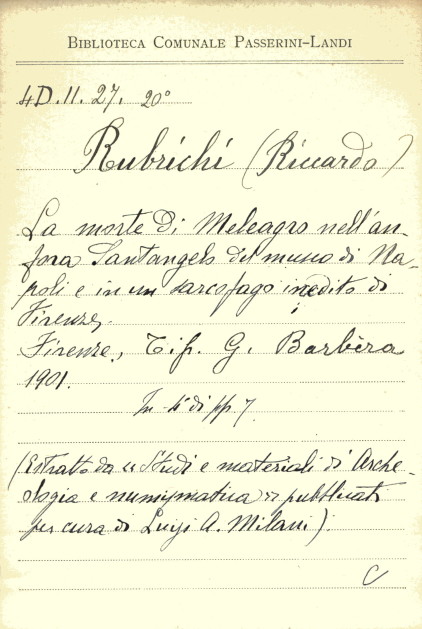 BIBLIOTECA COMUNALE PASSERINI-LANDI
4D.11.27. 20°
Rubrichi (Riccardo)
La morte di Meleagro nell'an-
fora Santangelo del museo di Na-
poli e in un sarcofago inedito di
Firenze.
Firenze, Tip. G. Barbèra
1901.
In 4° di pp. 7
(Estratto da "Studi e materiali di Arche-
ologia e numismatica" pubblicati
per cura di Luigi A. Milani).
C